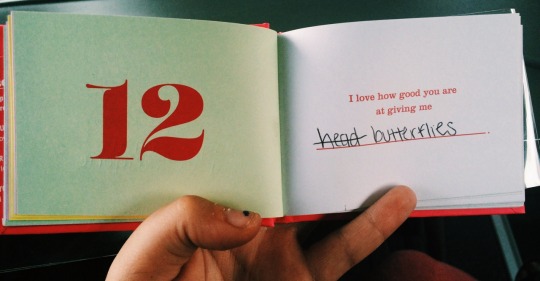 12
I love how good you are
at giving me
head butterflies .